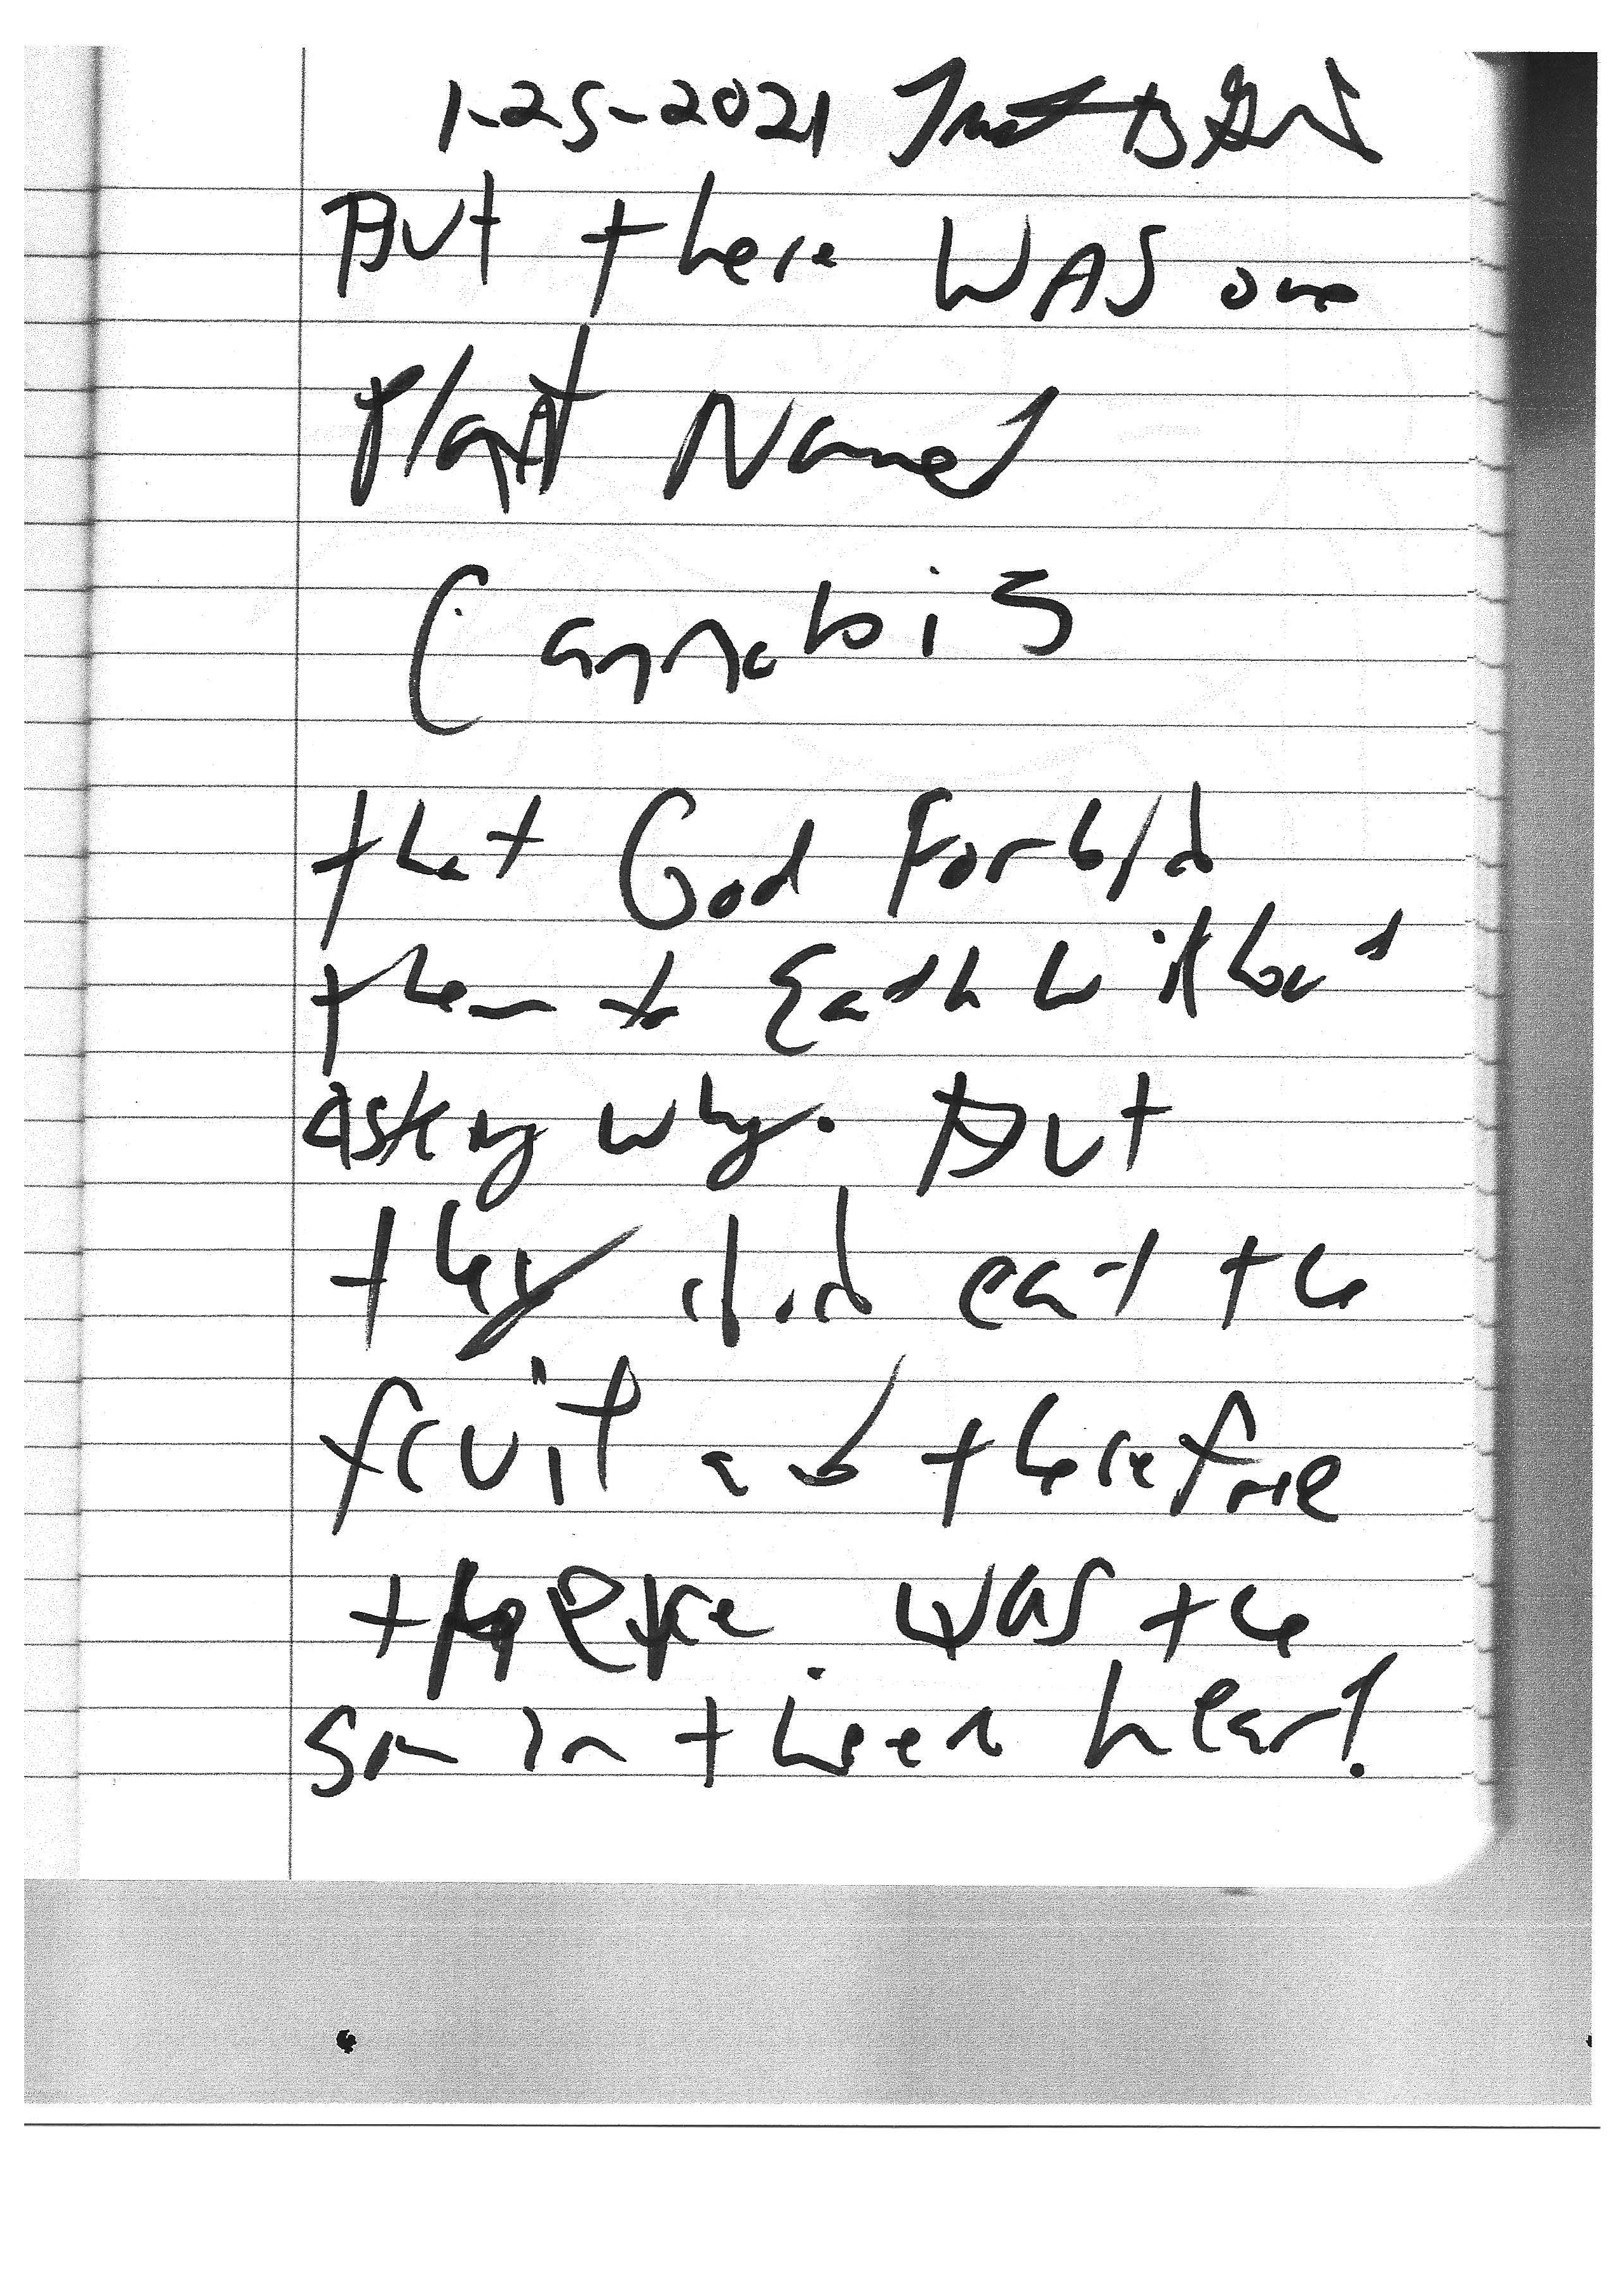 1-25-2021
But there WAS one
Plant Named
Cannabis
that God Forbid
them to Eat without
asking why. But
they did eat the
fruit and therefore
was the
in heart